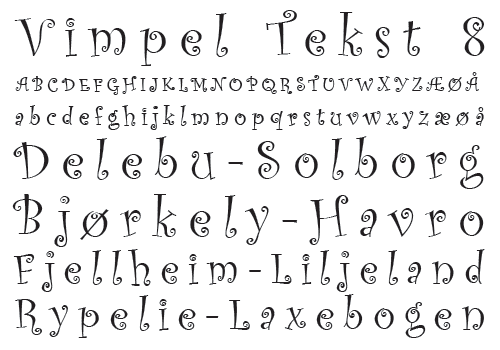 Vimpel Tekst 8
ABCDEFGHIJKLMNOPQRSTUVWXYZÆØÅ
abcdefghijklmnopqrstuvwxyzæøå
Delebu-Solborg
Bjørkely-Havro
Fjellheim-Liljeland
Rypelie-Laxebogen